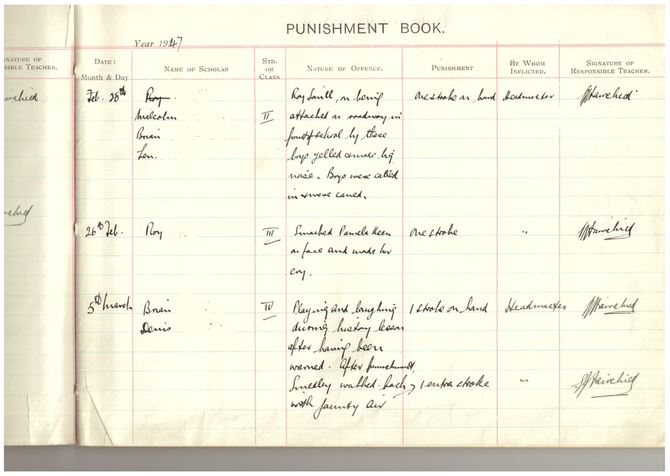 PUNISHMENT BOOK.
Year 1947
SIGNATURE OF
RESPONSIBLE TEACHER.
DATE:
Month & Day
NAME OF SCHOLAR
STD.
OR
CLASS
NATURE OF OFFENCE.
PUNISHMENT
BY WHOM
INFLICTED.
SIGNATURE OF
RESPONSIBLE TEACHER.
Feb. 28th
Roy
Malcolm
Brian
Len.
II
Roy Smith, on being
attacked in roadway in
front of school by these
boys yelled & made big
noise. Boys were called
in & were caned.
one stroke on hand
Headmaster
Fairchild
26th Feb.
Roy
III
Smacked Pamela Keen
in face and made her
cry.
one stroke
"
Fairchild
5th March
Brian
Denis
IV
Playing and laughing
during history lesson
after having been
warned. After punishment,
Smedley walked back
with jaunty air
1 stroke on hand
Headmaster
Fairchild
1 extra stroke
"
Fairchild